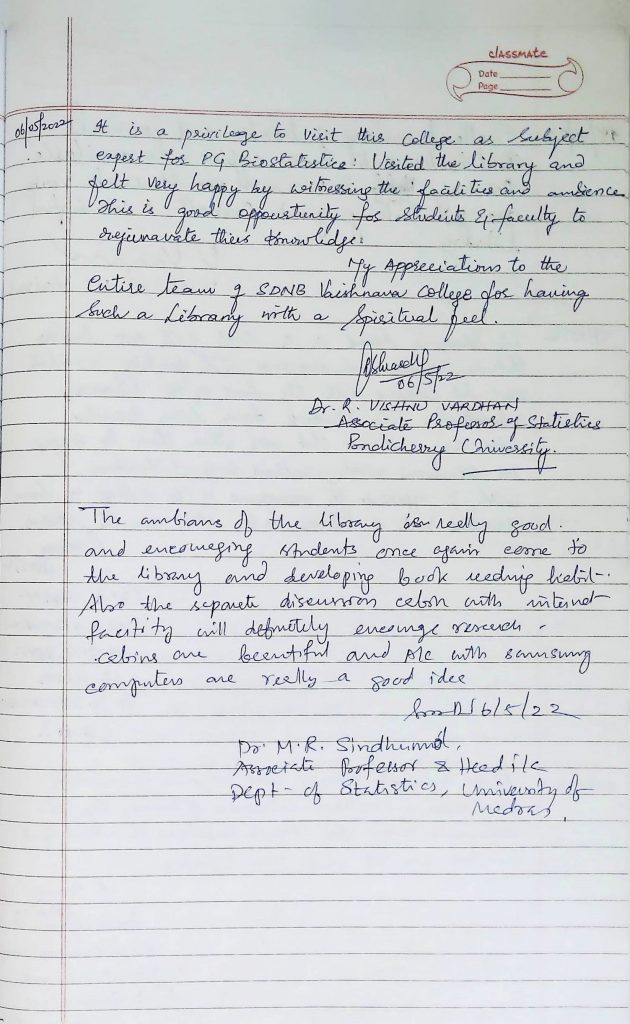 classmate
Date
Page
06/05/2022
It is a privilege to visit this College as Subject
expert for PG Biostatistics: Visited the library and
felt very happy by witnessing the facilities and ambience
This is good oppourtunity for students & faculty to
rejunavate their knowledge:
My Appreciations to the
Entire team of SDNB Vaishnava College for having
Such a Library with a Spiritual feel.
06/5/22
Dr. R. VISHNU VARDHAN
Associate Professor of Statistics
Pondicherry University.
The ambians of the library is really good.
and encouraging students once again come to
the library and developing book reading habit.
Also the separate discussion cabin with internet
facility will definitely encourage research.
cabins are beautiful and A/c with samsung
computers are really a good idea
6/5/22
Dr. M.R. Sindhumol,
Associate Professor & Head i/c
Dept- of Statistics, University of
Madras.